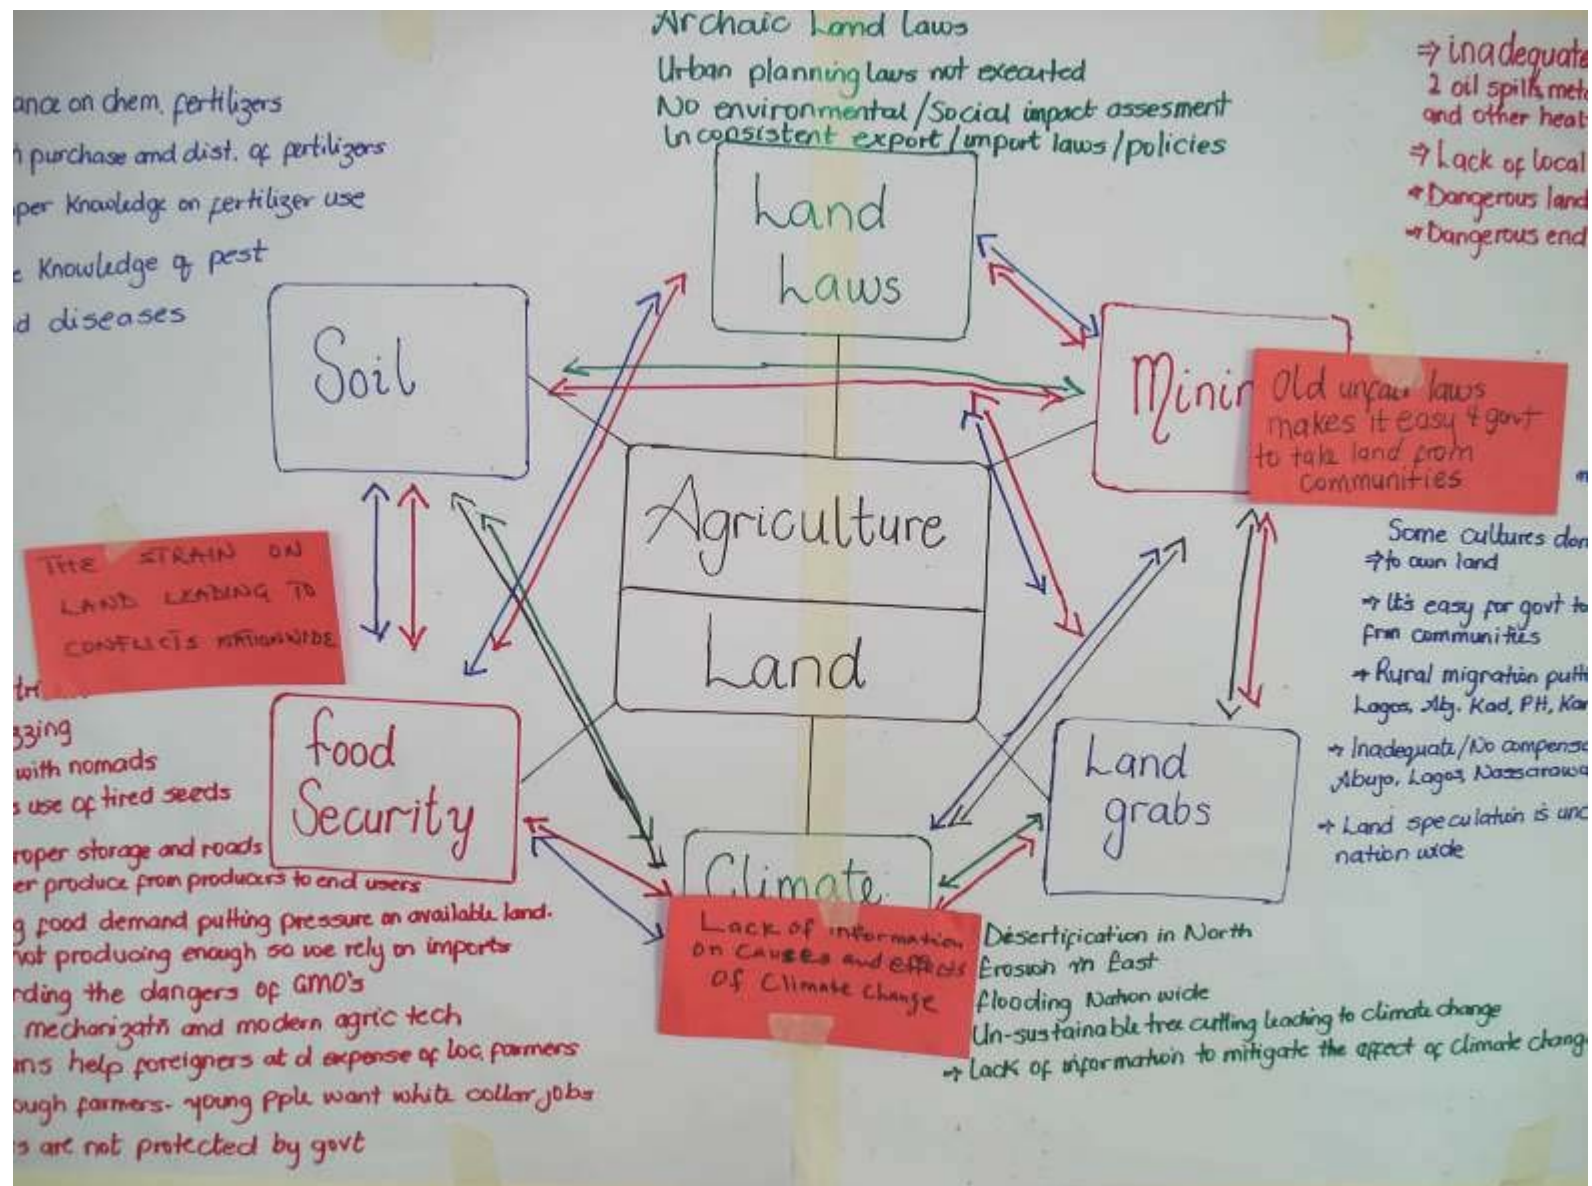 Archaic Land Laws
Urban planning laws not executed
No environmental/Social impact assesment
Inconsistent export/import laws/policies
ance on chem. fertilizers
purchase and dist. of fertilizers
per Knowledge on fertilizer use
Knowledge of pest
d diseases
⇒ inadequate
2 oil spills, met
and other heat
⇒ Lack of local
→ Dangerous land
→ Dangerous end
Land
Laws
Soil
Minin
Old unfair laws
makes it easy 4 govt
to take land from
communities
Agriculture
Land
THE STRAIN ON
LAND LEADING TO
CONFLICTS NATIONWIDE
Some cultures don
⇒ to own land
→ It's easy for govt to
from communities
→ Rural migration putti
Lagos, Abj. Kad, PH, Kan
→ Inadequate/No compensa
Abuja, Lagos, Nassarawa
→ Land speculation is unc
nation wide
food
Security
Land
grabs
Climate
Lack of information
on causes and effects
of Climate Change
with nomads
s use of tired seeds
roper storage and roads
er produce from producers to end users
g food demand putting pressure on available land.
not producing enough so we rely on imports
rding the dangers of GMO's
mechanizatn and modern agric tech
ans help foreigners at d expense of loc. farmers
ough farmers- young pple want white collar jobs
s are not protected by govt
Desertification in North
Erosion in East
flooding Nation wide
Un-sustainable tree cutting leading to climate change
→ Lack of information to mitigate the effect of climate change